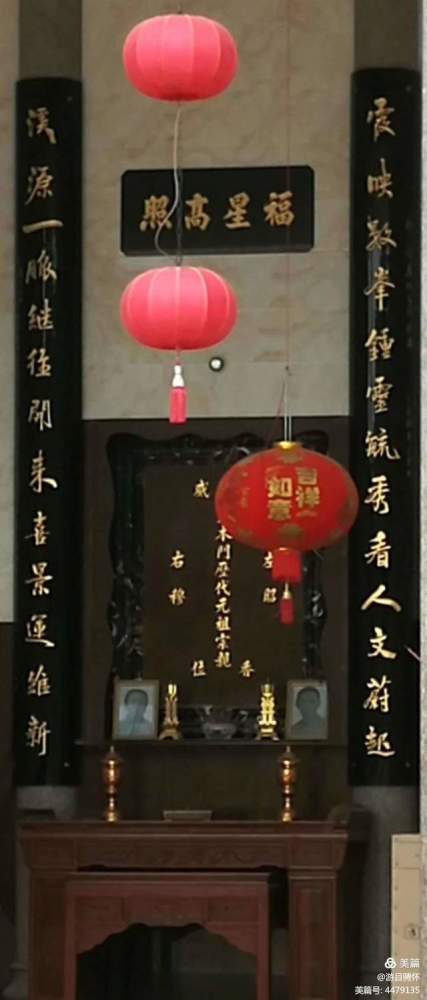 福星髙照
霞映数峯鍾靈毓秀看人文蔚起
溪源一脈继往開来喜景運維新
吉祥
如意
威
門歷代元祖宗親
昭
右穆
香位
美篇
@游目骋怀
美篇号: 4479135